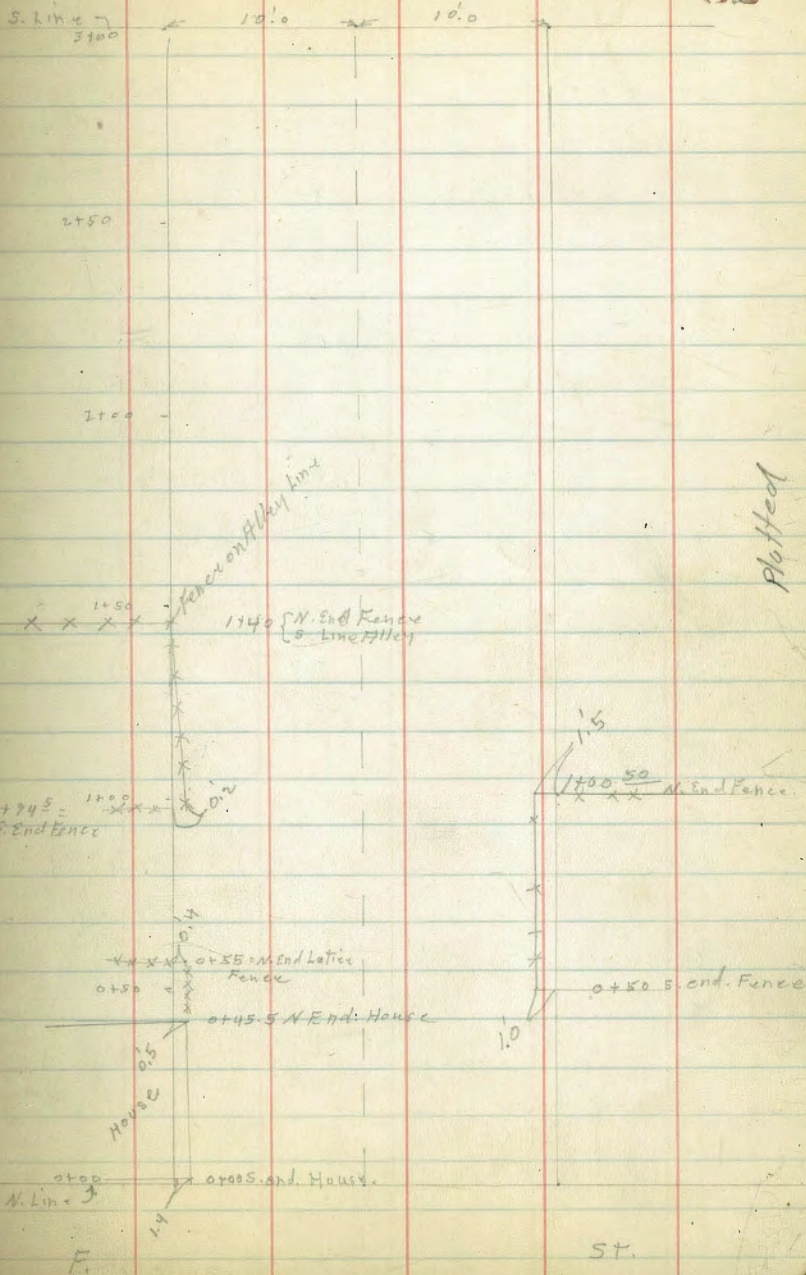 S. Line
3+00
10.'0
10.'0
2+50
2+00
Plotted
Fence on Alley Line
1+50
1+40 { N. End Fence
S Line Alley
1.'5
1+00.50 N. End Fence.
1+00
+94 5 =
S. End Fence
0.'2
0.'4
0+55 = N. End Lattice
Fence
0+50
0+50 S. end. Fence
0+45.5 N End. House
1.'0
0.'5
House
0+00
0+00 S. end. House.
N. Line
1.4
F.
St.